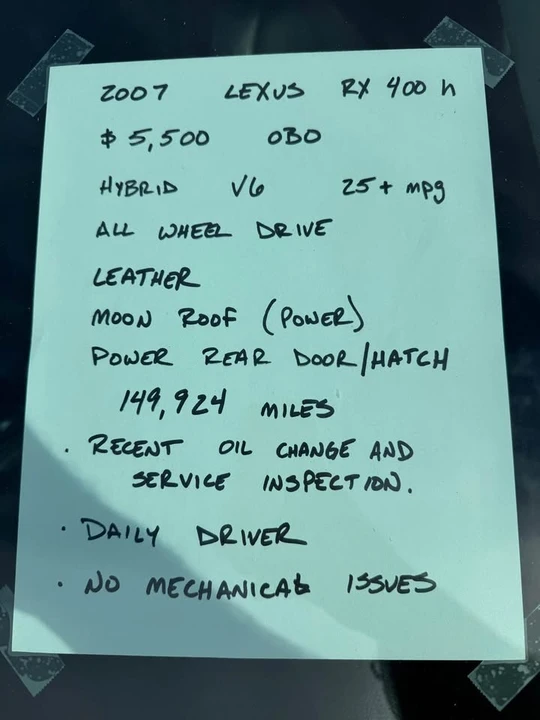 2007 LEXUS RX 400 h
$ 5,500 OBO
HYBRID V6 25+ mpg
ALL WHEEL DRIVE
LEATHER
MOON ROOF (POWER)
POWER REAR DOOR/HATCH
149,924 MILES
· RECENT OIL CHANGE AND
SERVICE INSPECTION.
· DAILY DRIVER
· NO MECHANICAL ISSUES